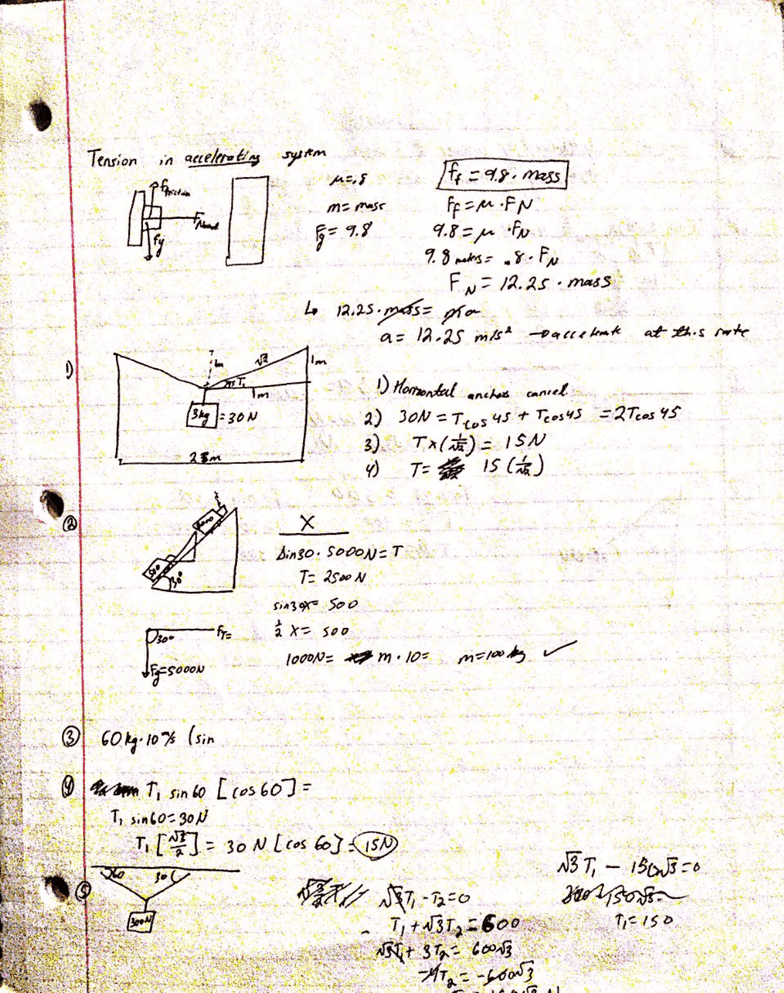 Tension in accelerating system
Ffriction
FNormal
Fg
μ=.8
m= mass
Fg = 9.8
Ff = 9.8 · mass
Ff = μ · FN
9.8 = μ · FN
= .8 · FN
FN = 12.25 · mass
↳ 12.25 · mass =
a = 12.25 m/s² → accelerate at this rate
1)
1m
√2
1m
T1
1m
3kg = 30N
m
1) Horizontal anchors cancel
2) 30N = Tcos 45 + Tcos45 = 2Tcos 45
3) T×(1/√2) = 15N
4) T= 15 (1/√2)
②
500
30°
X
Sin30 · 5000N = T
T= 2500N
sin30x= 500
½ X = 500
1000N = m · 10 = m=100kg ✓
30°
Fg=5000N
③ 60kg · 10 (sin
④ T1 sin60 [cos60] =
T1 sin60=30N
T1 [√3/2] = 30N [cos 60] = 15N
⑤
60 30
300N
√3T1 - T2=0
T1 + √3T2 = 600
√3T1 + 3T2 = 600√3
-4T2 = -600√3
√3T1 - 150√3=0
T1=150